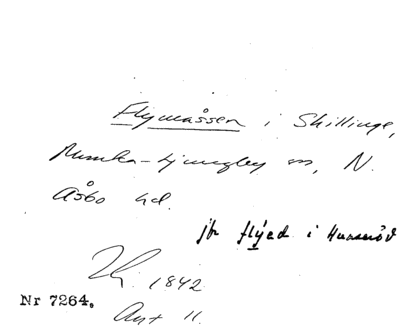 Flymåssen i Skillinge,
Munka-Ljungby sn, N.
Åsbo hd.
jfr flyed i
1842.
Nr 7264.
Avst 11.